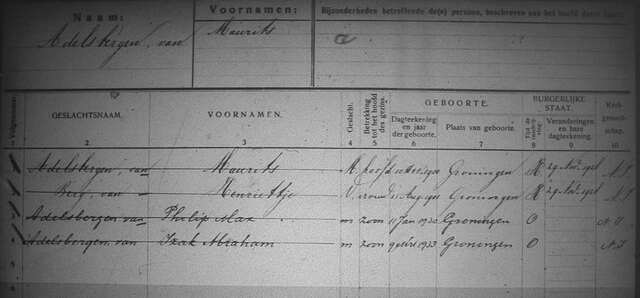 Naam:
Voornamen:
Bijzonderheden betreffende de(n) persoon, beschreven aan het hoofd dezer
Adelsbergen, van
Maurits
a
GESLACHTSNAAM.
VOORNAMEN.
Geslacht.
Betrekking tot het hoofd des gezins
GEBOORTE.
Dagteekening en jaar der geboorte.
Plaats van geboorte.
BURGERLIJKE STAAT.
Veranderingen en hare dagteekening.
2 3 4 5 6 7 8 9 10
Adelsbergen, van Maurits M. hoofd Groningen H 29 Nov.
Berg, van Henriettje V. vrouw Aug. Groningen H 29 Nov. N.I.
Adelsbergen van Philip Max m zoon 11 Jan Groningen O N.I.
Adelsbergen, van Izak Abraham m zoon 1933 Groningen O N.I.